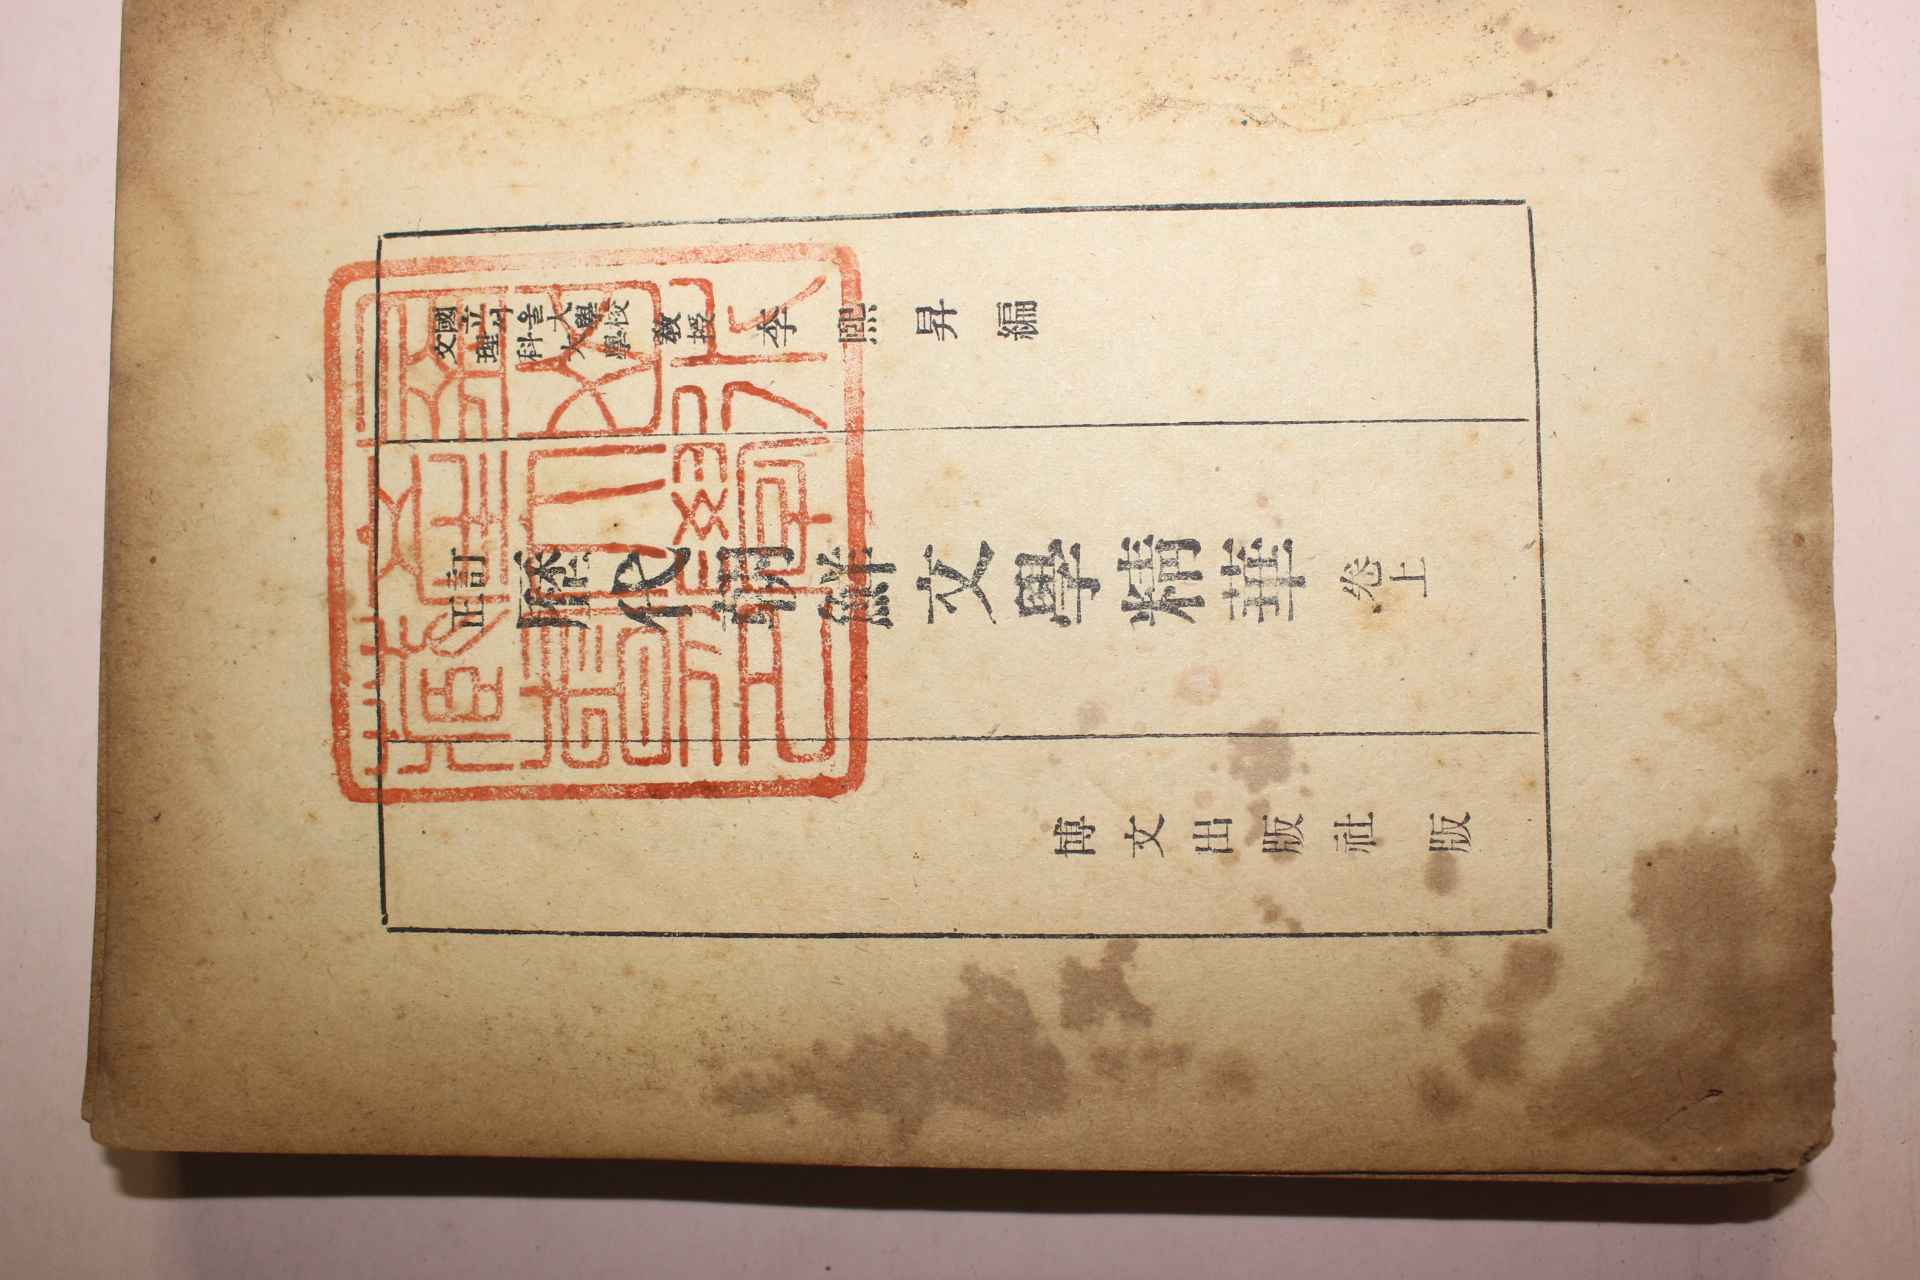 國立서울大學校
文理科大學 敎授 李熙昇編
訂正 歷代朝鮮文學精華 卷上
博文出版社版